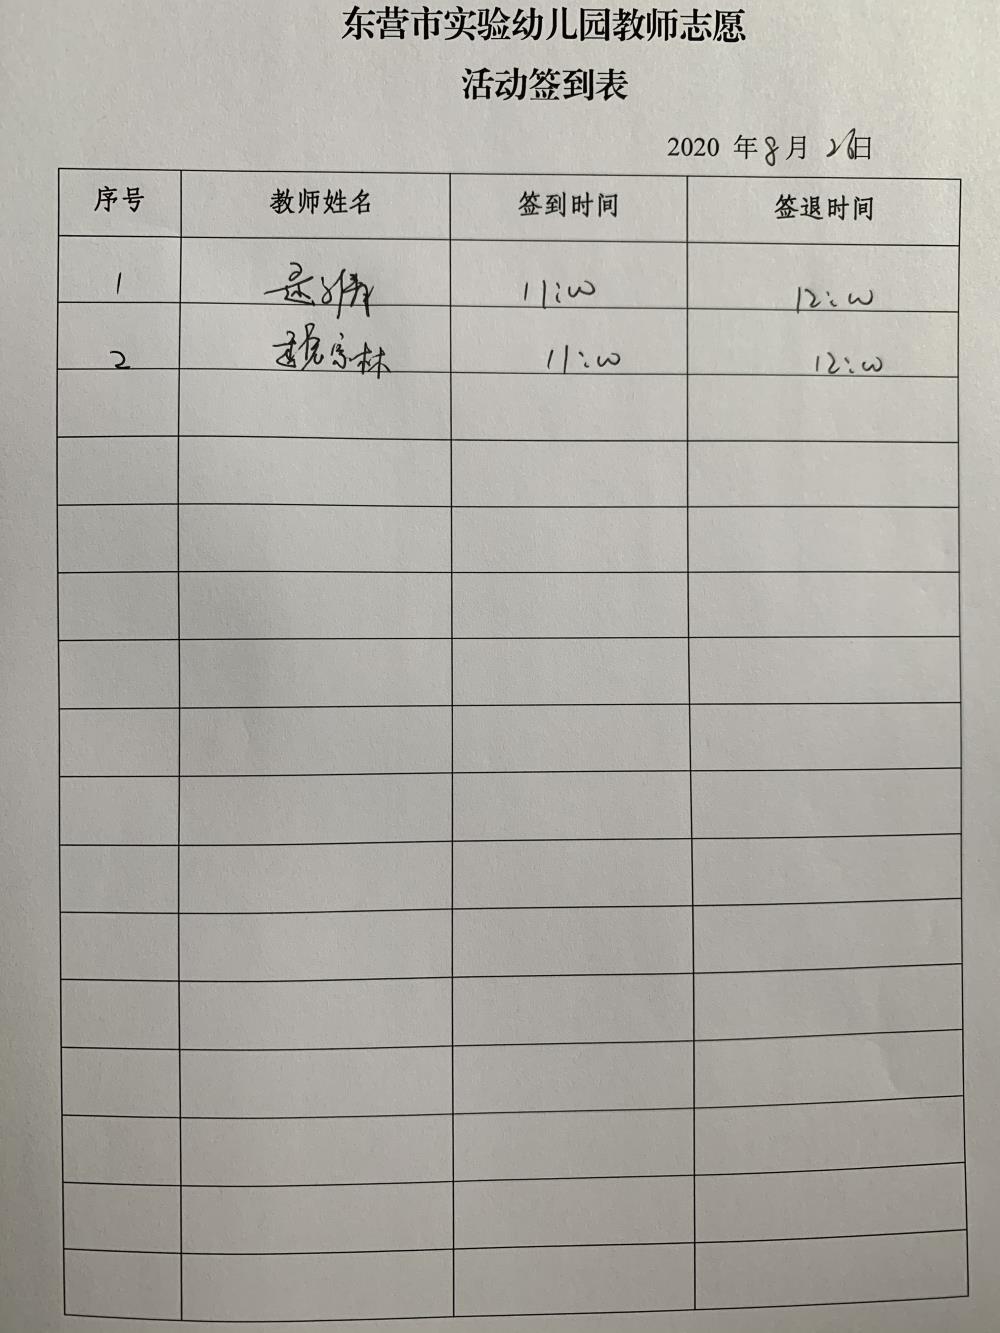 东营市实验幼儿园教师志愿
活动签到表
2020 年 8 月 26 日
序号 教师姓名 签到时间 签退时间
1 11:00 12:00
2 宗林 11:00 12:00